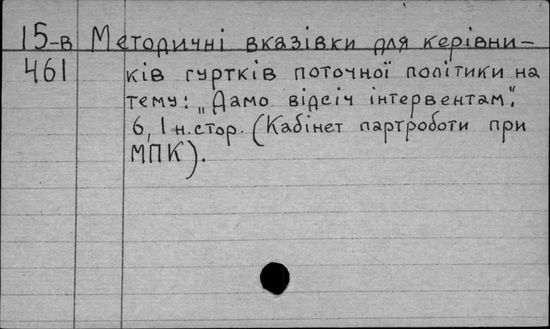 15-в Методичні вказівки для керівни-
461 ків гуртків поточної політики на
тему: „Дамо відсіч інтервентам".
6, 1 н.стор. (Кабінет партроботи при
МПК).